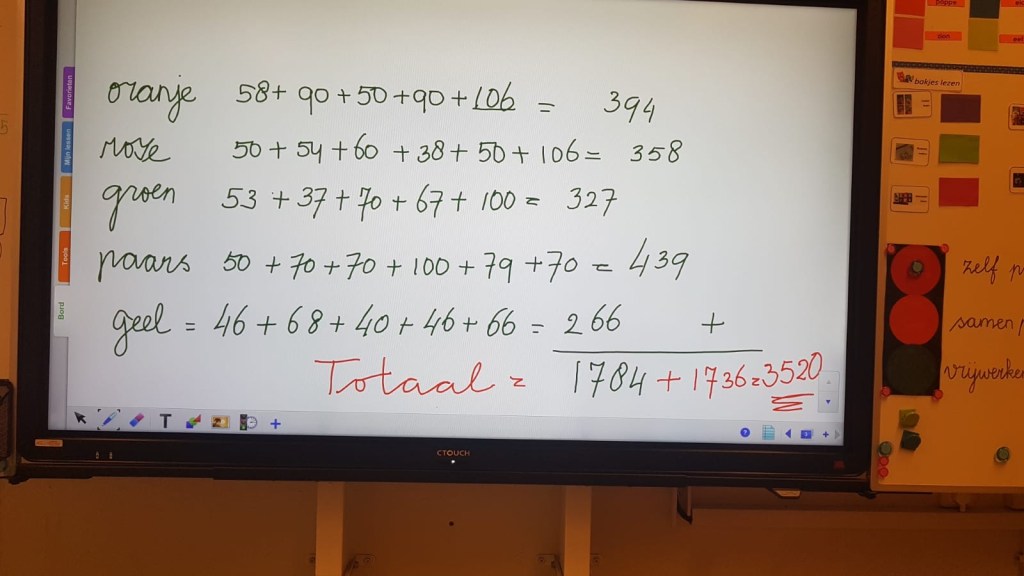 oranje 58 + 90 + 50 + 90 + 106 = 394
roze 50 + 54 + 60 + 38 + 50 + 106 = 358
groen 53 + 37 + 70 + 67 + 100 = 327
paars 50 + 70 + 70 + 100 + 79 + 70 = 439
geel = 46 + 68 + 40 + 46 + 66 = 266 +
Totaal = 1784 + 1736 = 3520
Favorieten
Mijn lessen
Kids
Tools
Bord
T
CTOUCH
bakjes lezen
zelf
samen
vrijwerken